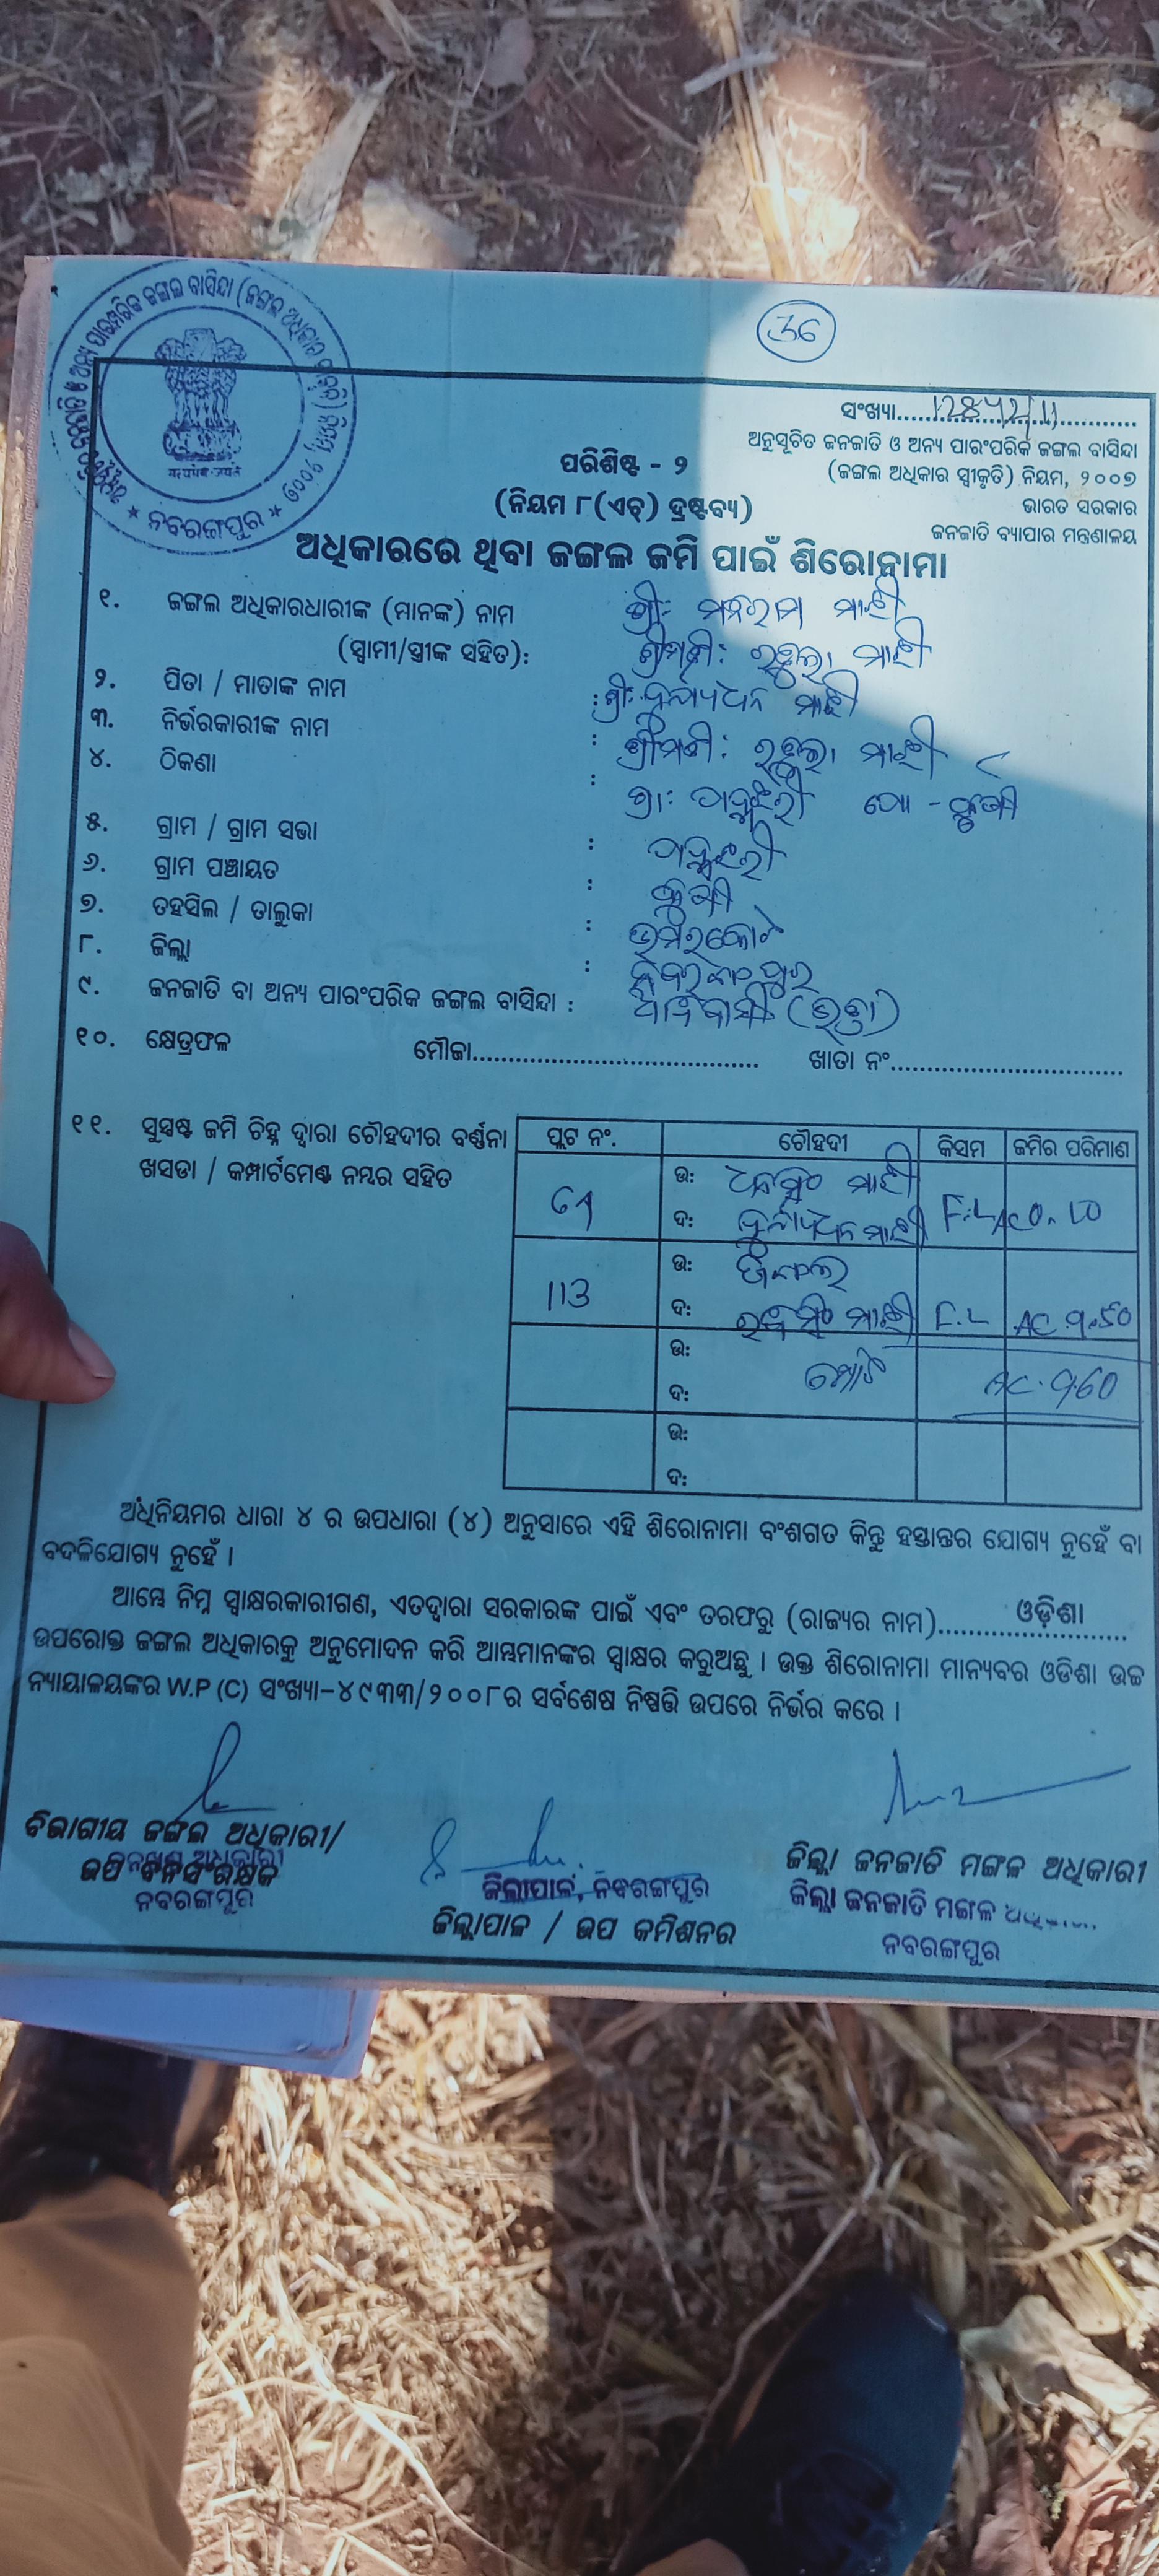 ଅନୁସୂଚିତ ଜନଜାତି ଓ ଅନ୍ୟ ପାରମ୍ପରିକ ଜଙ୍ଗଲ ବାସିନ୍ଦା (ଜଙ୍ଗଲ ଅଧିକାର ସ୍ୱୀକୃତି) ନିୟମ ୨୦୦୭
ନବରଙ୍ଗପୁର
सत्यमेव जयते
36
ସଂଖ୍ୟା
ଅନୁସୂଚିତ ଜନଜାତି ଓ ଅନ୍ୟ ପାରଂପରିକ ଜଙ୍ଗଲ ବାସିନ୍ଦା
(ଜଙ୍ଗଲ ଅଧିକାର ସ୍ୱୀକୃତି) ନିୟମ, ୨୦୦୭
ଭାରତ ସରକାର
ଜନଜାତି ବ୍ୟାପାର ମନ୍ତ୍ରଣାଳୟ
ପରିଶିଷ୍ଟ - ୨
(ନିୟମ ୮(ଏଚ୍) ଦ୍ରଷ୍ଟବ୍ୟ)
ଅଧିକାରରେ ଥିବା ଜଙ୍ଗଲ ଜମି ପାଇଁ ଶିରୋନାମା
୧. ଜଙ୍ଗଲ ଅଧିକାରଧାରୀଙ୍କ (ମାନଙ୍କ) ନାମ ଶ୍ରୀ: ମାଝୀ
(ସ୍ୱାମୀ/ସ୍ତ୍ରୀଙ୍କ ସହିତ): ଶ୍ରୀମତୀ: ମାଝୀ
୨. ପିତା / ମାତାଙ୍କ ନାମ : ଶ୍ରୀ: ମାଝୀ
୩. ନିର୍ଭରକାରୀଙ୍କ ନାମ : ଶ୍ରୀମତୀ: ମାଝୀ
୪. ଠିକଣା : ଗ୍ରା: ପୋ -
୫. ଗ୍ରାମ / ଗ୍ରାମ ସଭା :
୬. ଗ୍ରାମ ପଞ୍ଚାୟତ :
୭. ତହସିଲ / ତାଲୁକା : ଉମରକୋଟ
୮. ଜିଲ୍ଲା : ନବରଂଗପୁର
୯. ଜନଜାତି ବା ଅନ୍ୟ ପାରଂପରିକ ଜଙ୍ଗଲ ବାସିନ୍ଦା : ଆଦିବାସୀ
୧୦. କ୍ଷେତ୍ରଫଳ ମୌଜା ଖାତା ନଂ
୧୧. ସୁସ୍ପଷ୍ଟ ଜମି ଚିହ୍ନ ଦ୍ୱାରା ଚୌହଦୀର ବର୍ଣ୍ଣନା
ଖସଡା / କମ୍ପାର୍ଟମେଣ୍ଟ ନମ୍ବର ସହିତ
ପ୍ଲଟ ନଂ. ଚୌହଦୀ କିସମ ଜମିର ପରିମାଣ
ଉ: ମାଝୀ
ଦ: ମାଝୀ F.L
113 ଉ: ଜଙ୍ଗଲ
ଦ: ମାଝୀ F.L AC.
ଉ:
ଦ: ମୋଟ AC.
ଉ:
ଦ:
ଅଧିନିୟମର ଧାରା ୪ ର ଉପଧାରା (୪) ଅନୁସାରେ ଏହି ଶିରୋନାମା ବଂଶଗତ କିନ୍ତୁ ହସ୍ତାନ୍ତର ଯୋଗ୍ୟ ନୁହେଁ ବା
ବଦଳିଯୋଗ୍ୟ ନୁହେଁ ।
ଆମ୍ଭେ ନିମ୍ନ ସ୍ୱାକ୍ଷରକାରୀଗଣ, ଏତଦ୍ୱାରା ସରକାରଙ୍କ ପାଇଁ ଏବଂ ତରଫରୁ (ରାଜ୍ୟର ନାମ) ଓଡ଼ିଶା
ଉପରୋକ୍ତ ଜଙ୍ଗଲ ଅଧିକାରକୁ ଅନୁମୋଦନ କରି ଆମ୍ଭମାନଙ୍କର ସ୍ୱାକ୍ଷର କରୁଅଛୁ । ଉକ୍ତ ଶିରୋନାମା ମାନ୍ୟବର ଓଡିଶା ଉଚ୍ଚ
ନ୍ୟାୟାଳୟଙ୍କର W.P (C) ସଂଖ୍ୟା-୪୯୩୩/୨୦୦୮ର ସର୍ବଶେଷ ନିଷ୍ପତ୍ତି ଉପରେ ନିର୍ଭର କରେ ।
ବିଭାଗୀୟ ଜଙ୍ଗଲ ଅଧିକାରୀ/
ଉପ ବନସଂରକ୍ଷକ
ବନଖଣ୍ଡ ଅଧିକାରୀ
ନବରଙ୍ଗପୁର
ଜିଲ୍ଲାପାଳ, ନବରଙ୍ଗପୁର
ଜିଲ୍ଲାପାଳ / ଉପ କମିଶନର
ଜିଲ୍ଲା ଜନଜାତି ମଙ୍ଗଳ ଅଧିକାରୀ
ଜିଲ୍ଲା ଜନଜାତି ମଙ୍ଗଳ
ନବରଙ୍ଗପୁର